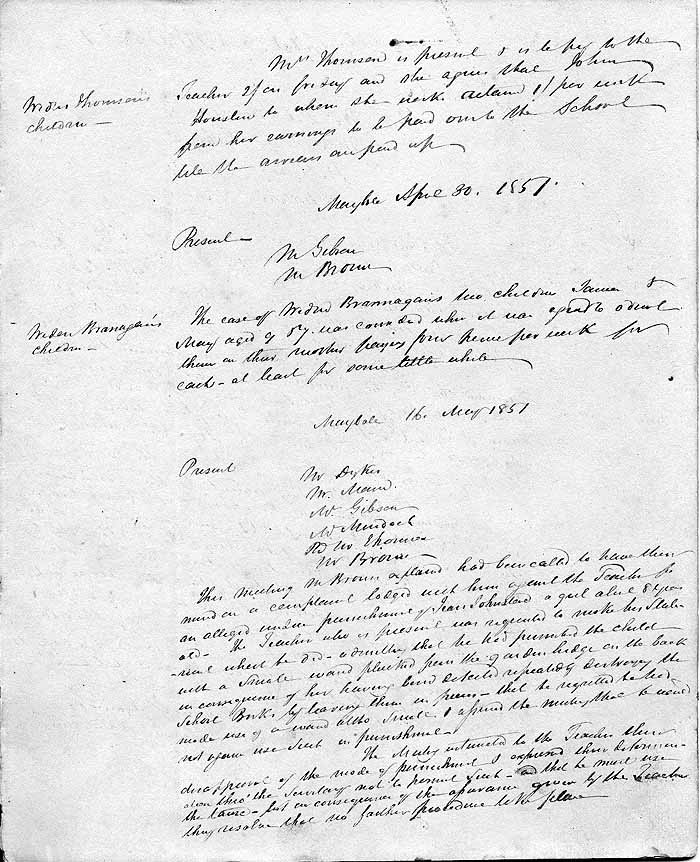 Mrs Thomson is present & is to pay to the
Widow Thomson's
children —
Teacher 2/ on friday and she agrees that John
Houston to whom she works retain 1/ per week
from her earnings to be paid over to the School
till the arrears are paid up
Maybole April 30. 1851.
Present —
Mr Gibson
Mr Brown
Widow Brannagan's
children —
The case of Widow Brannagan's two children James &
Mary aged 9 & 7 was considered when it was agreed to admit
them on their mother paying four pence per week for
each - at least for some little while
Maybole 16. May 1851
Present
Mr Dykes
Mr. Mann.
Mr. Gibson
Mr Murdoch
Rd Mr Thomson
Mr Brown —
This meeting Mr Brown explained had been called to have their
mind on a complaint lodged with him against the Teacher for
an alleged undue punishment of Jean Johnston a girl about 8 years
old - The Teacher who is present was requested to make his State
-ment which he did - admitting that he had punished the child
with a small wand plucked from the garden hedge on the back
in consequence of her having been detected repeatedly destroying the
School Books by tearing them in pieces - that he regretted he had
made use of a wand altho small & assured the meeting that he would
not again use such in punishment —
The Meeting intimated to the Teacher their
disapproval of the mode of punishment & expressed their determin-
ation thro' the Secretary not to permit such - and that he must use
the tawse - but in consequence of the assurance given by the Teacher
they resolve that no farther procedure take place